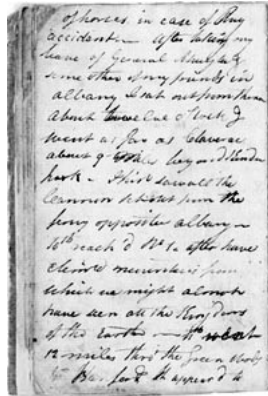 of horses in case of Any
accident — after taking my
leave of General Schuyler &
some other of my friends in
albany I sat out from there
about twelve o'clock, &
went as far as Claverac
about 9 miles beyond Kinder
hook — I first saw all the
cannon set out from the
ferry opposite albany —
16th reach'd No 1. after have
climb'd mountains from
which we might almost
have seen all the Kingdoms
of the Earth — 11th went
12 miles thro' the Green Woods
to Blanford It appear'd to